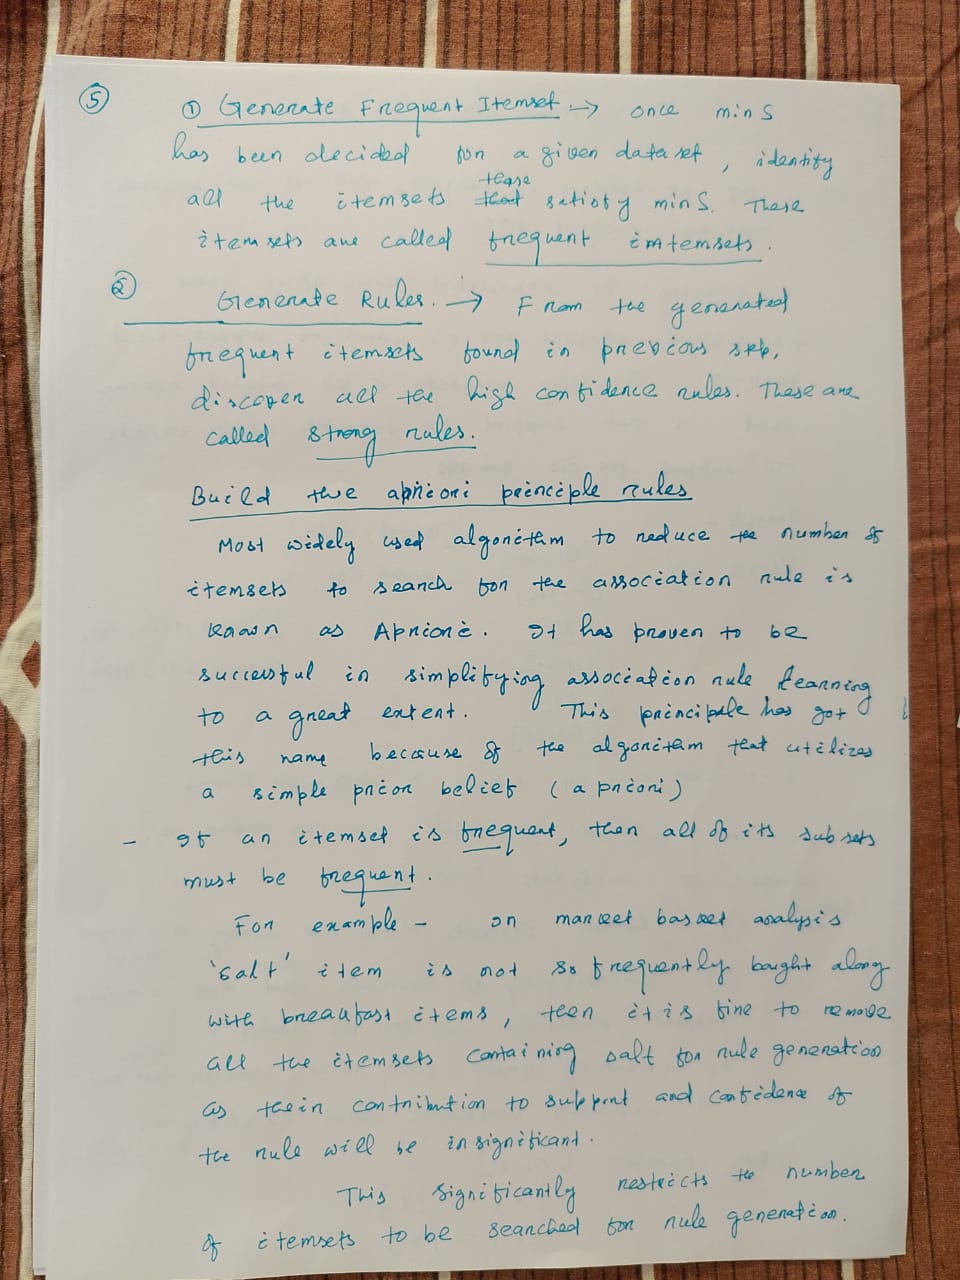 5
① Generate Frequent Itemset → once minS
has been decided for a given dataset, identify
these
all the itemsets that satisfy minS. These
itemsets are called frequent imtemsets.
② Generate Rules. → From the generated
frequent itemsets found in previous step,
discover all the high confidence rules. These are
called strong rules.
Build the apriori principle rules
Most widely used algorithm to reduce the number of
itemsets to search for the association rule is
known as Apriori. It has proven to be
successful in simplifying association rule learning
to a great extent. This principle has got
this name because of the algorithm that utilizes
a simple prior belief (a priori)
- If an itemset is frequent, then all of its subsets
must be frequent.
For example - on market basket analysis
'salt' item is not so frequently bought along
with breakfast items, then it is fine to remove
all the itemsets containing salt for rule generation
as their contribution to support and confidence of
the rule will be insignificant.
This significantly restricts the number
of itemsets to be searched for rule generation.